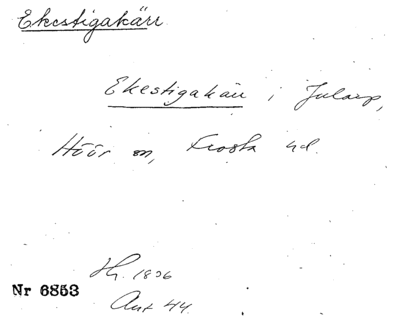 Ekestigakärr
Ekestigakärr i Jularp,
Höör sn, Frosta hd.
Hy. 1836
Nr 6853
Akt 44.